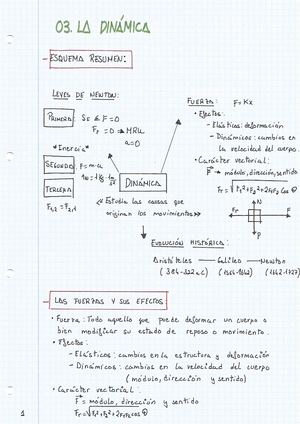 03. LA DINÁMICA
- ESQUEMA RESUMEN:
LEYES DE NEWTON:
PRIMERA: Si Σ F = 0
Fr = 0 → MRU
a = 0
*Inercia*
SEGUNDO: F = m·a
TERCERA
F1,2 = F2,1
DINÁMICA
<<Estudia las causas que
originan los movimientos>>
FUERZA: F = Kx
• Efectos:
- Elásticos: deformación
- Dinámicos: cambios en
la velocidad del cuerpo.
• Carácter vectorial:
F → módulo, dirección, sentido
Fr = √F1² + F2² + 2F1F2 cos
Fr
N
P
EVOLUCIÓN HISTÓRICA:
Aristóteles — Galileo — Newton
(384-322 a.C) (1564-1642) (1643-1727)
- LAS FUERZAS Y SUS EFECTOS
• Fuerza: Todo aquello que puede deformar un cuerpo o
bien modificar su estado de reposo o movimiento.
• Efectos:
- Elásticos: cambios en la estructura y deformación
- Dinámicos: cambios en la velocidad del cuerpo
(módulo, dirección y sentido)
• Carácter vectorial:
F = módulo, dirección y sentido
Fr = √F1² + F2² + 2F1F2 cos
1